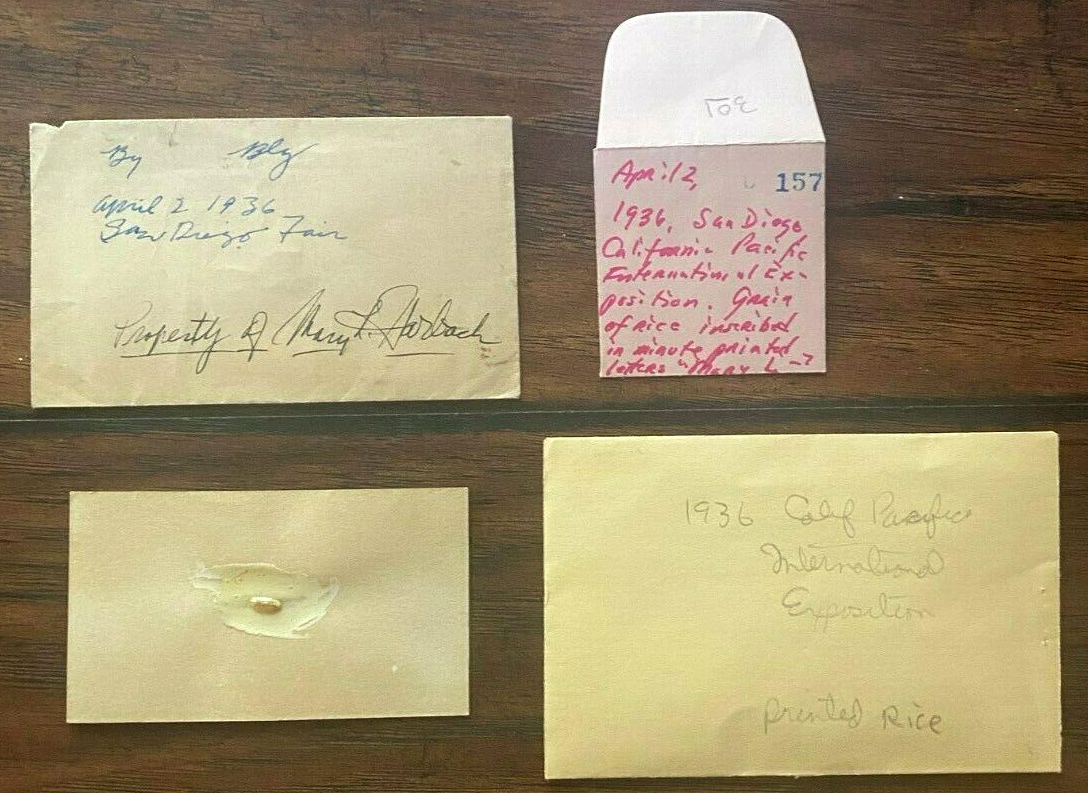 By Bly
April 2 1936
San Diego Fair
Property of Mary L. Horbach
April 2,
157
1936, San Diego
California Pacific
International Ex-
position. Grain
of rice inscribed
in minute printed
letters "Mary L -?
1936 Calif Pacific
International
Exposition
printed Rice